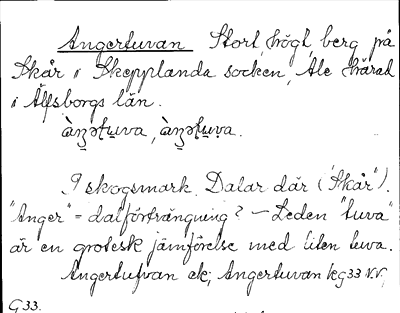 Angertuvan Stort, högt, berg på
Skår i Skepplanda socken, Ale härad
i Älfsborgs län.
àŋərtuva, àŋərtuva.
I skogsmark. Dalar där ("Skår").
"Anger" = dalförträngning? – Leden "tuva"
är en grotesk jämförelse med liten tuva.
Angertufvan ek; Angertuvan kg 33 N.V.
G33.